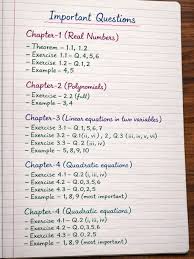 Important Questions
Chapter-1 (Real Numbers)
- Theorem - 1.1, 1.2
- Exercise 1.1 - Q. 4, 5, 6
- Exercise 1.2 - Q. 1, 2
- Example - 4, 5
Chapter-2 (Polynomials)
- Exercise - 2.2 (full)
- Example - 3, 4
Chapter-3 (Linear equations in two variables)
- Exercise 3.1 - Q. 1, 5, 6, 7
- Exercise 3.2 - Q. 1 (i, iii, vi), 2, Q 3 (iii, iv, v, vi)
- Exercise 3.3 - Q. 1 (i, ii), Q 2 (ii, iii, iv)
- Example - 5, 8, 9, 10
Chapter-4 (Quadratic equations)
- Exercise 4.1 - Q. 2 (i, iii, iv)
- Exercise 4.2 - Q. 0, 2, 5
- Exercise 4.3 - Q. 0, 2, 5
- Example - 1, 8, 9 (most important)
Chapter-4 (Quadratic equations)
- Exercise 4.1 - Q. 2 (ii, iii, iv)
- Exercise 4.2 - Q. 0, 3, 5
- Exercise 4.3 - Q. 0, 2, 5
- Example - 1, 8, 9 (most important)